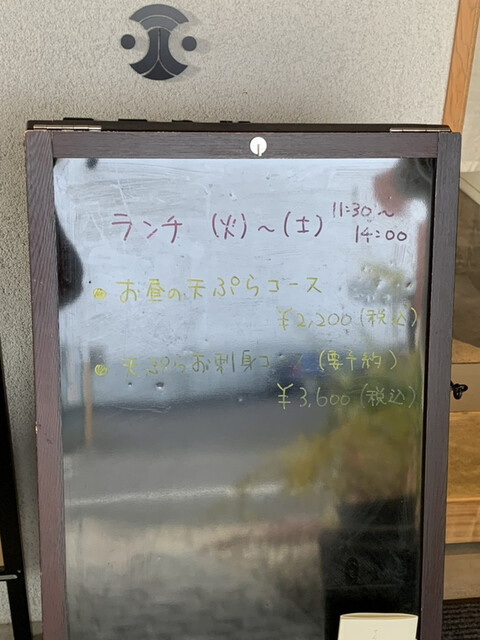 ランチ (火)~(土) 11:30~
14:00
お昼の天ぷらコース
¥2,200(税込)
天ぷらお刺身コース(要予約)
¥3,600(税込)